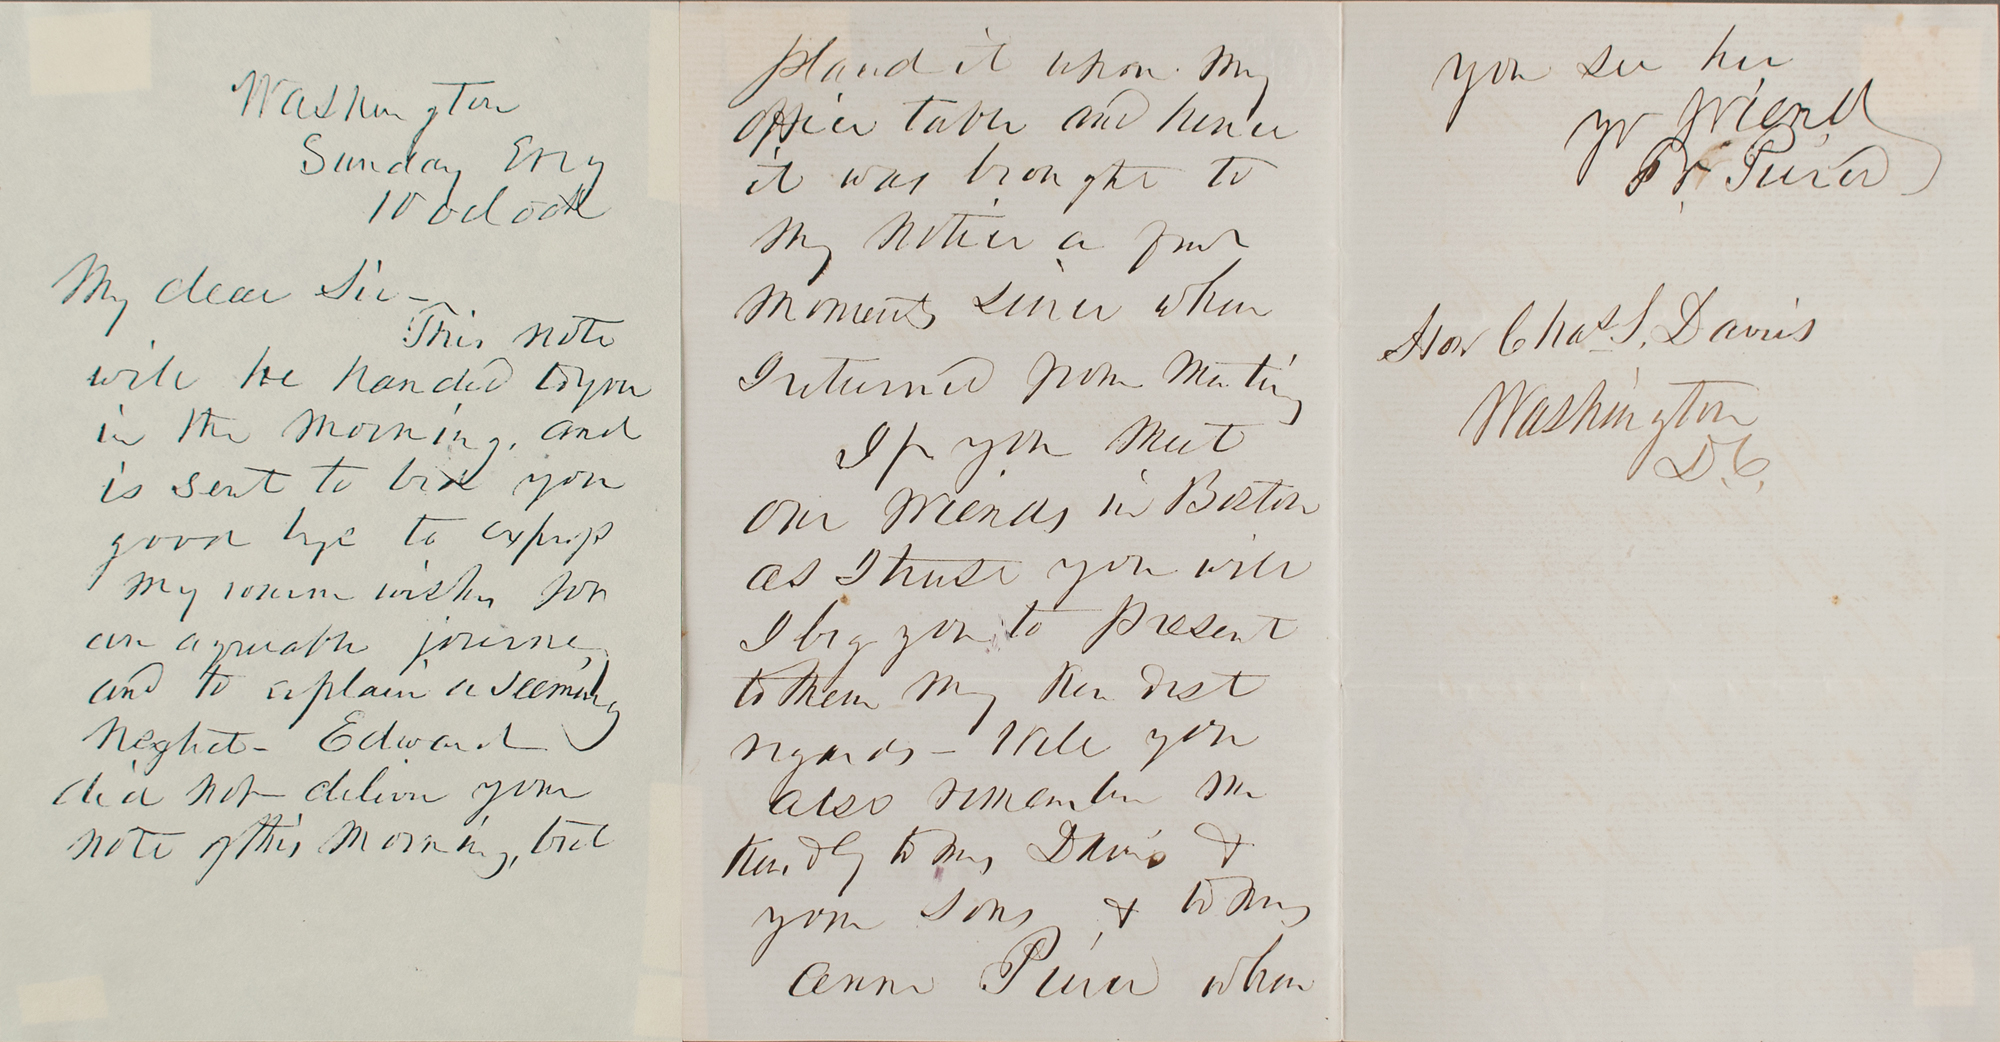 Washington
Sunday Evg
10 oclock
My dear Sir—
This note
will be handed to you
in the morning, and
is sent to bid you
good bye to express
my warm wishes for
an agreeable journey
and to explain a seeming
neglect— Edward
did not deliver your
note of this morning, but
placed it upon my
office table and hence
it was brought to
my notice a few
moments since when
I returned from meeting
If you meet
our friends in Boston
as I trust you will
I beg you to present
to them my kindest
regards— Will you
also remember me
kindly to Mrs Davis &
your sons, & to Mrs
Anne Pierce when
you see her
yr friend
Fr. Pierce
Hon Chas S. Davis
Washington
D.C.